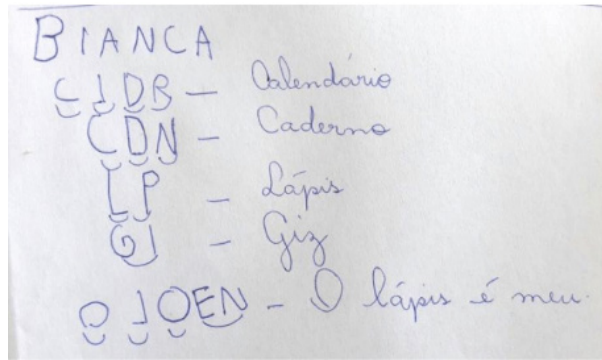 BIANCA
CIDB - Calendário
CDN - Caderno
LP - Lápis
GI - Giz
OIOEN - O lápis é meu.